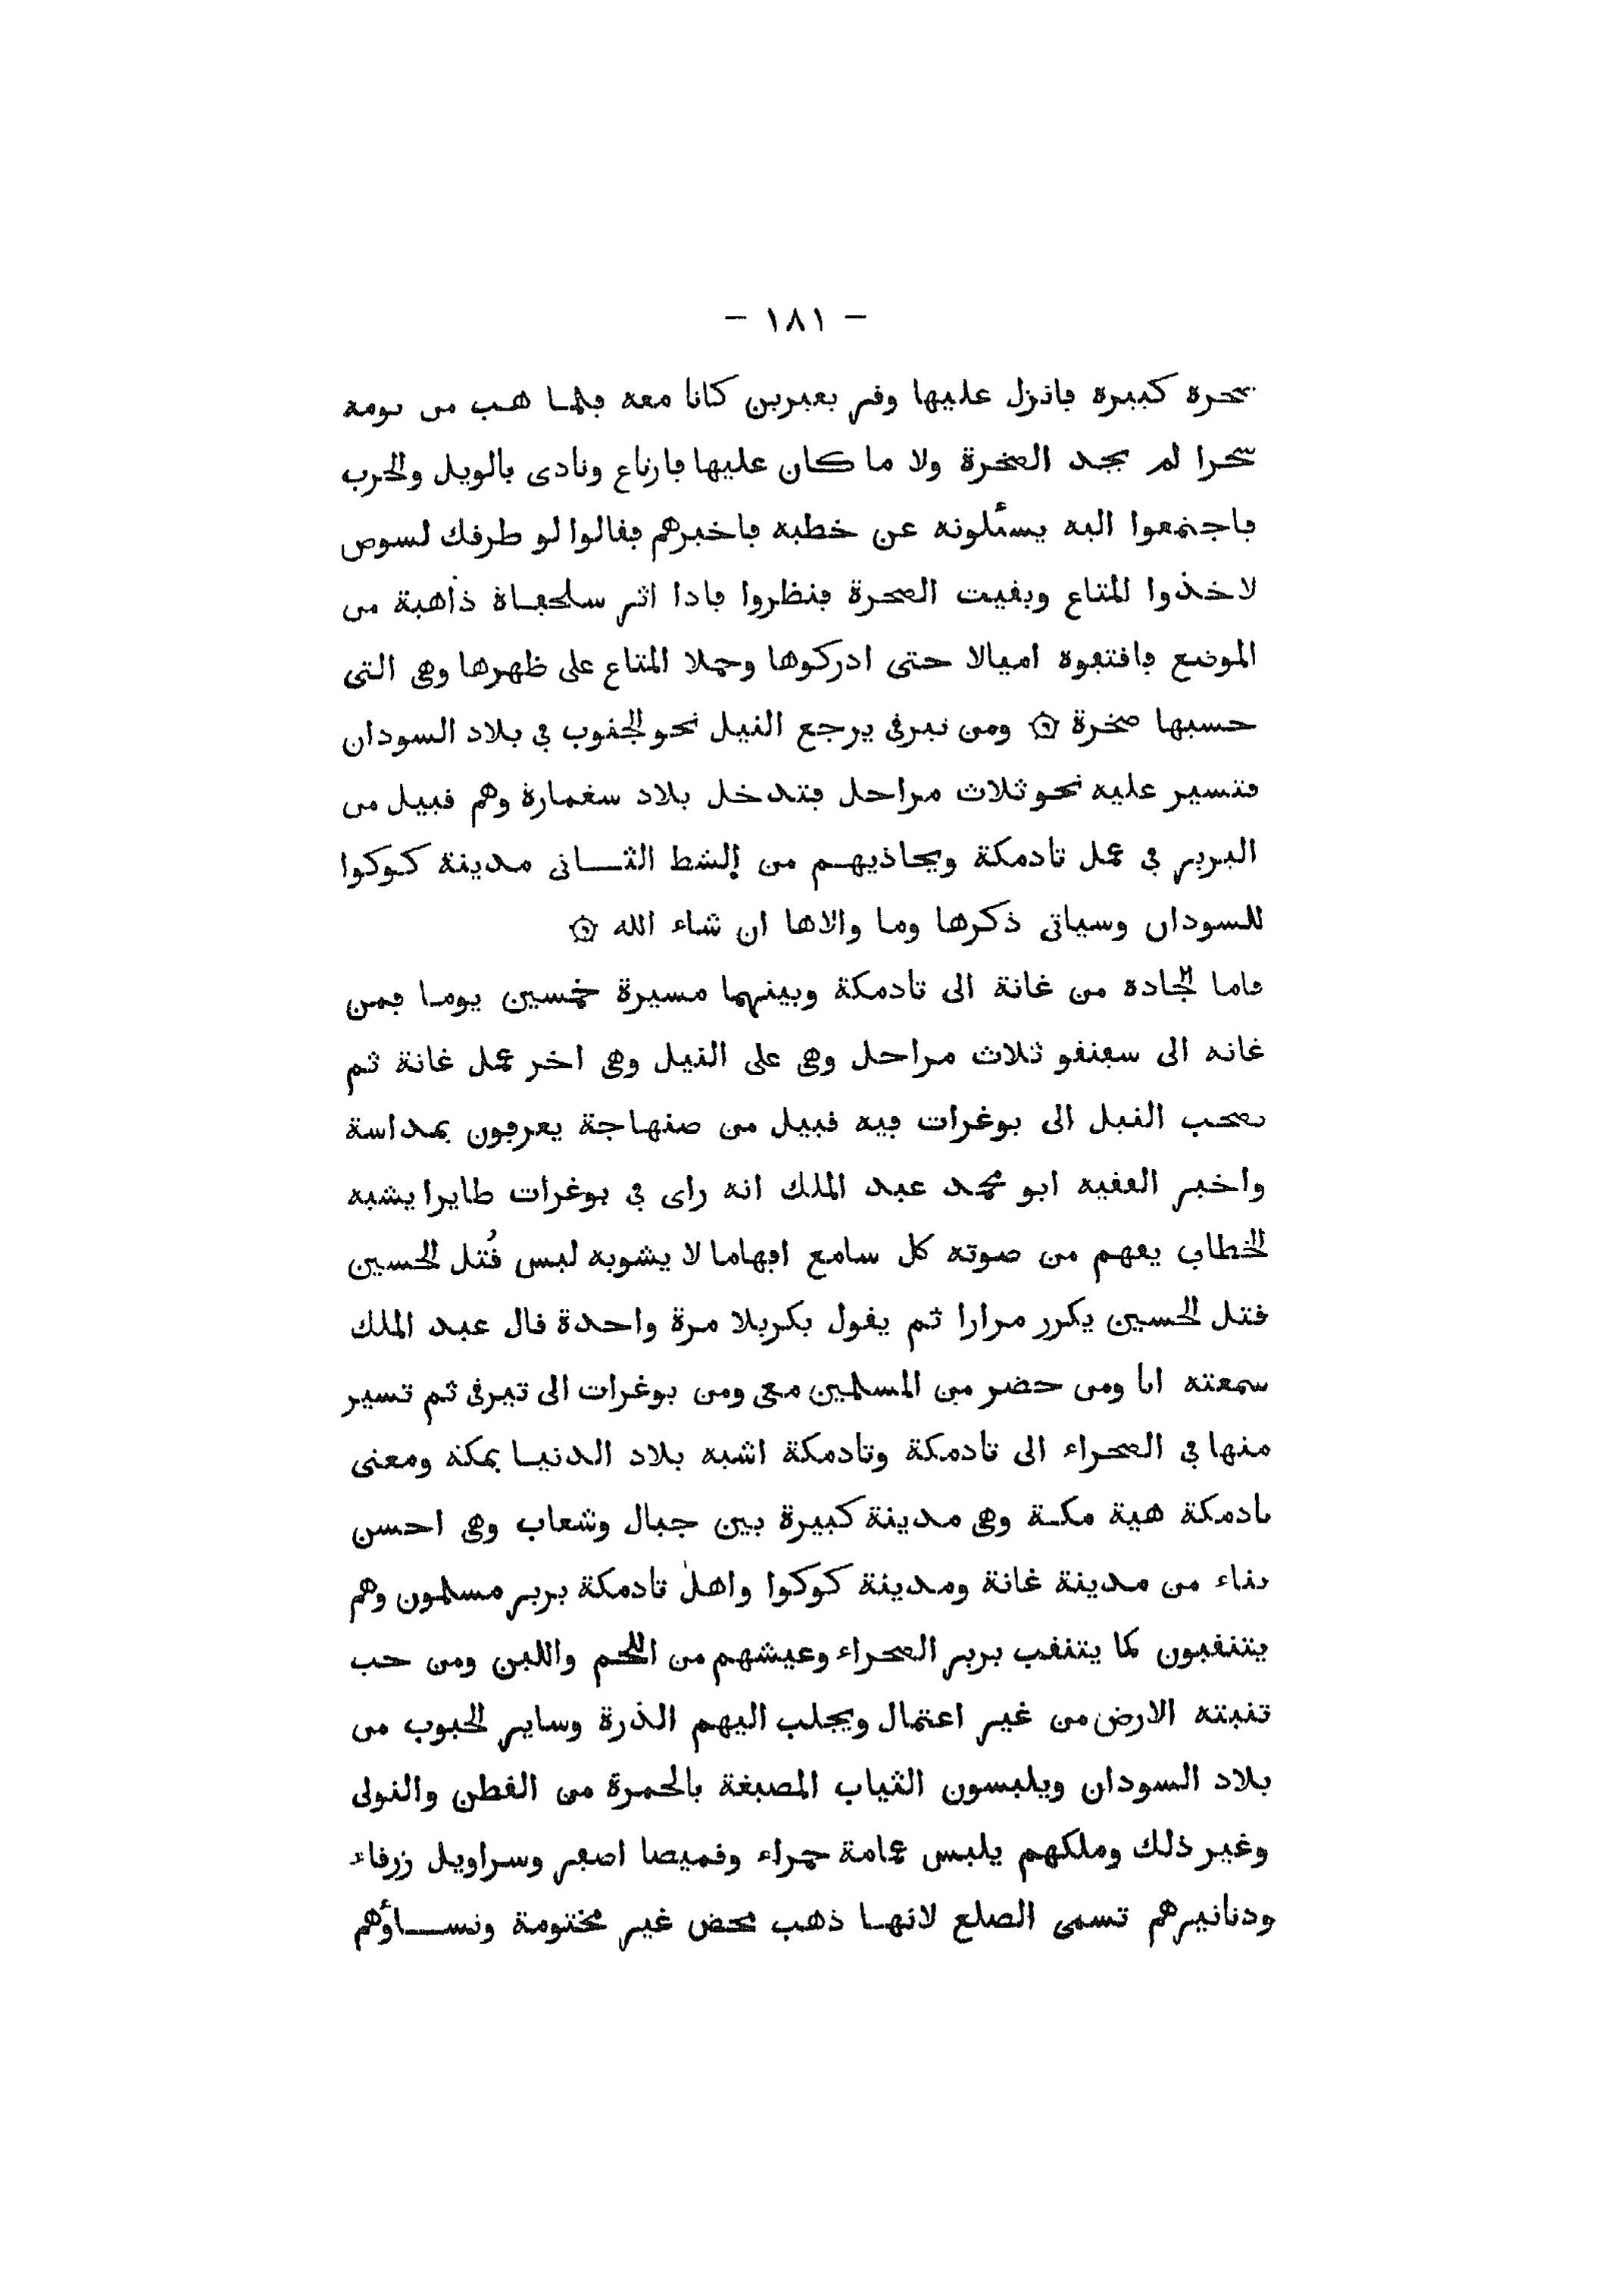 - ١٨١ -
صخرة كبيرة فانزل عليها وقر بعيرين كانا معه فلما هب من نومه
سحرا لم يجد الصخرة ولا ما كان عليها فارتاع ونادى بالويل والحرب
فاجتمعوا اليه يسئلونه عن خطبه فاخبرهم فقالوا لو طرقك لصوص
لاخذوا المتاع وبقيت الصخرة فنظروا فاذا اثر سلحفاة ذاهبة من
الموضع فاقتفوه اميالا حتى ادركوها وحملا المتاع على ظهرها وهى التى
حسبها صخرة ۞ ومن تيرقى يرجع النيل نحو الجنوب في بلاد السودان
فتسير عليه نحو ثلاث مراحل فتدخل بلاد سغمارة وهم قبيل من
البربر في عمل تادمكة ويحاذيهم من الشط الثانى مدينة كوكوا
للسودان وسياتى ذكرها وما والاها ان شاء الله ۞
فاما الجادة من غانة الى تادمكة وبينهما مسيرة خمسين يوما فمن
غانه الى سفنقو ثلاث مراحل وهى على النيل وهى اخر عمل غانة ثم
تصحب النيل الى بوغرات فيه قبيل من صنهاجة يعرفون بمداسة
واخبر الفقيه ابو محمد عبد الملك انه راى في بوغرات طايرا يشبه
الخطاف يفهم من صوته كل سامع افهاما لا يشوبه لبس قُتل الحسين
قتل الحسين يكرر مرارا ثم يقول بكربلا مرة واحدة قال عبد الملك
سمعته انا ومن حضر من المسلمين معى ومن بوغرات الى تيرقى ثم تسير
منها في الصحراء الى تادمكة وتادمكة اشبه بلاد الدنيا بمكة ومعنى
تادمكة هية مكة وهى مدينة كبيرة بين جبال وشعاب وهى احسن
بناء من مدينة غانة ومدينة كوكوا واهل تادمكة بربر مسلمون وهم
يتنقبون كما يتنقب بربر الصحراء وعيشهم من اللحم واللبن ومن حب
تنبته الارض من غير اعتمال ويجلب اليهم الذرة وساير الحبوب من
بلاد السودان ويلبسون الثياب المصبغة بالحمرة من القطن والنولى
وغير ذلك وملكهم يلبس عمامة حمراء وقميصا اصفر وسراويل زرقاء
ودنانيرهم تسمى الصلع لانها ذهب محض غير مختومة ونساؤهم